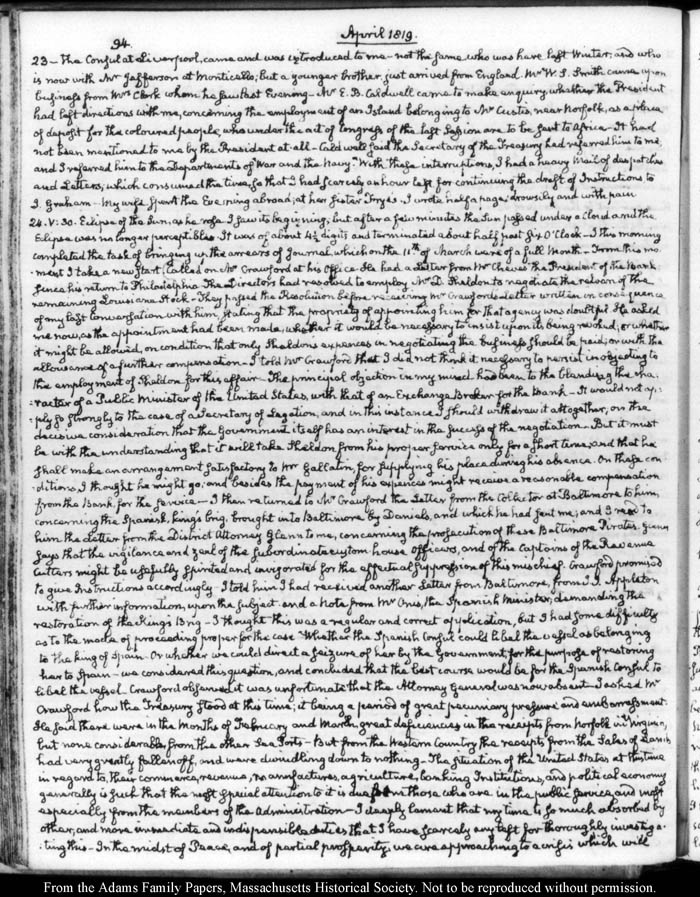 94.
April 1819.
23 - The Consul at Liverpool, came and was introduced to me - not the same who was here last Winter, and who
is now with Mr Jefferson at Monticello; but a younger brother, just arrived from England. Mr W. S. Smith came upon
business from Mrs Clark whom he saw last Evening. Mr E. B. Caldwell came to make enquiry whether the President
had left directions with me, concerning the employment of an Island belonging to Mr Custis, near Norfolk, as a place
of deposit for the coloured people, who under the act of Congress of the last Session are to be sent to Africa - It had
not been mentioned to me by the President at all - Caldwell said the Secretary of the Treasury had referred him to me,
and I referred him to the Departments of War and the Navy. With these interruptions, I had a heavy Mail of despatches
and Letters, which consumed the time, so that I had scarcely an hour left for continuing the draft of Instructions to
J. Graham - My wife spent the Evening abroad, at her Sister Frye's. I wrote half a page, drowsily and with pain
24. V:30. Eclipse of the Sun, as he rose I saw its beginning; but after a few minutes the Sun passed under a Cloud and the
Eclipse was no longer perceptible. It was of about 4½ digits and terminated about half past Six O'Clock - I this morning
completed the task of bringing up the arrears of Journal, which on the 11th of March were of a full Month - From this mo-
ment I take a new start. Called on Mr Crawford at his Office. He had a Letter from Mr Cheves the President of the Bank
since his return to Philadelphia. The Directors had resolved to employ Mr D. Sheldon to negotiate the reloan of the
remaining Louisiana Stock. They passed the Resolution before receiving Mr Crawford's letter written in consequence
of my last conversation with him, stating that the propriety of appointing him for that agency was doubtful. He asked
me now, as the appointment had been made, whether it would be necessary to insist upon its being revoked; or whether
it might be allowed, on condition that only Sheldon's expences in negotiating the business should be paid; or with the
allowance of a further compensation - I told Mr Crawford that I did not think it necessary to persist in objecting to
the employment of Sheldon for this affair - The principal objection in my mind has been to the blending the cha-
racter of a Public Minister of the United States, with that of an Exchange Broker for the Bank - It would not ap-
ply so strongly to the case of a Secretary of Legation, and in this instance I should withdraw it altogether, on the
decisive consideration that the Government itself has an interest in the success of the negotiation - But it must
be with the understanding that it will take Sheldon from his proper service only for a short time; and that he
shall make an arrangement satisfactory to Mr Gallatin, for supplying his place during his absence. On these con-
ditions, I thought he might go; and besides the payment of his expences might receive a reasonable compensation
from the Bank, for the service - I then returned to Mr Crawford the Letter from the Collector at Baltimore to him,
concerning the Spanish king's brig, brought into Baltimore by Daniels, and which he had sent me; and I read to
him the Letter from the District Attorney Glenn to me, concerning the prosecution of these Baltimore Pirates. Glenn
says that the vigilance and zeal of the subordinate custom house officers, and of the Captains of the Revenue
Cutters might be usefully spirited and invigorated for the effectual suppression of this mischief. Crawford promised
to give Instructions accordingly. I told him I had received another Letter from Baltimore, from J. J. Appleton
with further information, upon the subject and a Note from Mr Onis, the Spanish Minister, demanding the
restoration of the king's Brig - I thought this was a regular and correct application, but I had some difficulty
as to the mode of proceeding proper for the case. Whether the Spanish Consul could libel the vessel as belonging
to the king of Spain - Or whether we could direct a seizure of her by the Government for the purpose of restoring
her to Spain - we considered this question, and concluded that the best course would be for the Spanish Consul to
libel the vessel. Crawford observed it was unfortunate that the Attorney General was now absent - I asked Mr
Crawford how the Treasury stood at this time; it being a period of great pecuniary pressure and embarrassment.
He said there were in the Months of February and March great deficiencies in the receipts from Norfolk in Virginia,
but none considerable from the other Sea Ports - But from the Western Country the receipts from the Sales of Lands
had very greatly fallen off, and were dwindling down to nothing - The situation of the United States at this time
in regard to, their commerce, revenue, manufactures, agriculture, banking Institutions, and political economy
generally is such that the most special attention to it is due from those who are in the public service, and most
especially from the members of the Administration - I deeply lament that my time is so much absorbed by
other, and more immediate and indispensible duties that I have scarcely any left for thoroughly investiga-
ting this - In the midst of Peace, and of partial prosperity we are approaching to a crisis which will
From the Adams Family Papers, Massachusetts Historical Society. Not to be reproduced without permission.